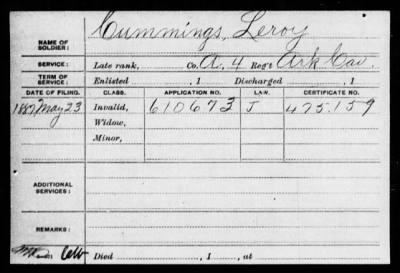 NAME OF SOLDIER: Cummings, Leroy
SERVICE: Late rank, Co. A, 4 Reg't Ark Cav.
TERM OF SERVICE: Enlisted , 1 Discharged , 1
DATE OF FILING. CLASS. APPLICATION NO. LAW. CERTIFICATE NO.
1887 May 23 Invalid, 610673 J 475.159
Widow,
Minor,
ADDITIONAL SERVICES:
REMARKS:
Died , 1 , at